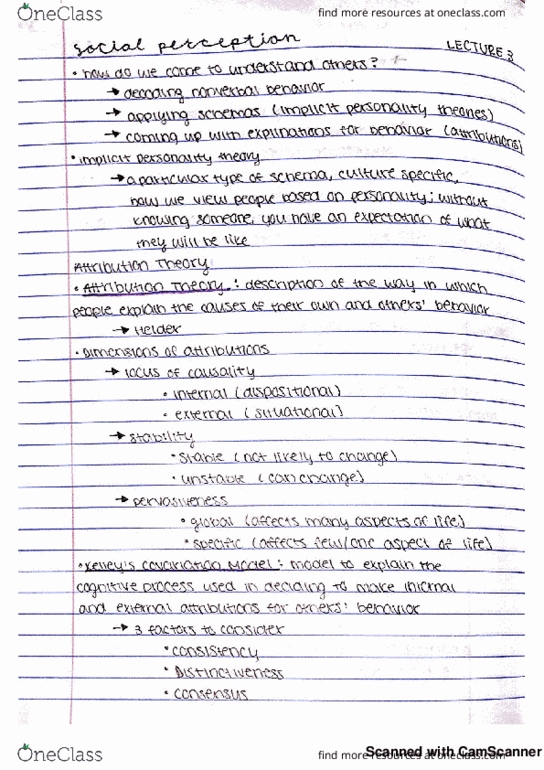 OneClass
find more resources at oneclass.com
social perception
LECTURE 3
• how do we come to understand others?
→ decoding nonverbal behavior
→ applying schemas (implicit personality theories)
→ coming up with explinations for behavior (attributions)
• implicit personality theory
→ a particular type of schema, culture specific,
how we view people based on personality; without
knowing someone, you have an expectation of what
they will be like
Attribution Theory
• Attribution Theory: description of the way in which
people explain the causes of their own and others' behavior
→ Heider
• Dimensions of attributions
→ locus of causality
• internal (dispositional)
• external (situational)
→ stability
• stable (not likely to change)
• unstable (can change)
→ pervasiveness
• global (affects many aspects of life)
• specific (affects few/one aspect of life)
• Kelley's covariation Model: model to explain the
cognitive process used in deciding to make internal
and external attributions for others' behavior
→ 3 factors to consider
• consistency
• Distinctiveness
• consensus
OneClass
find more resources at oneclass.com
Scanned with CamScanner